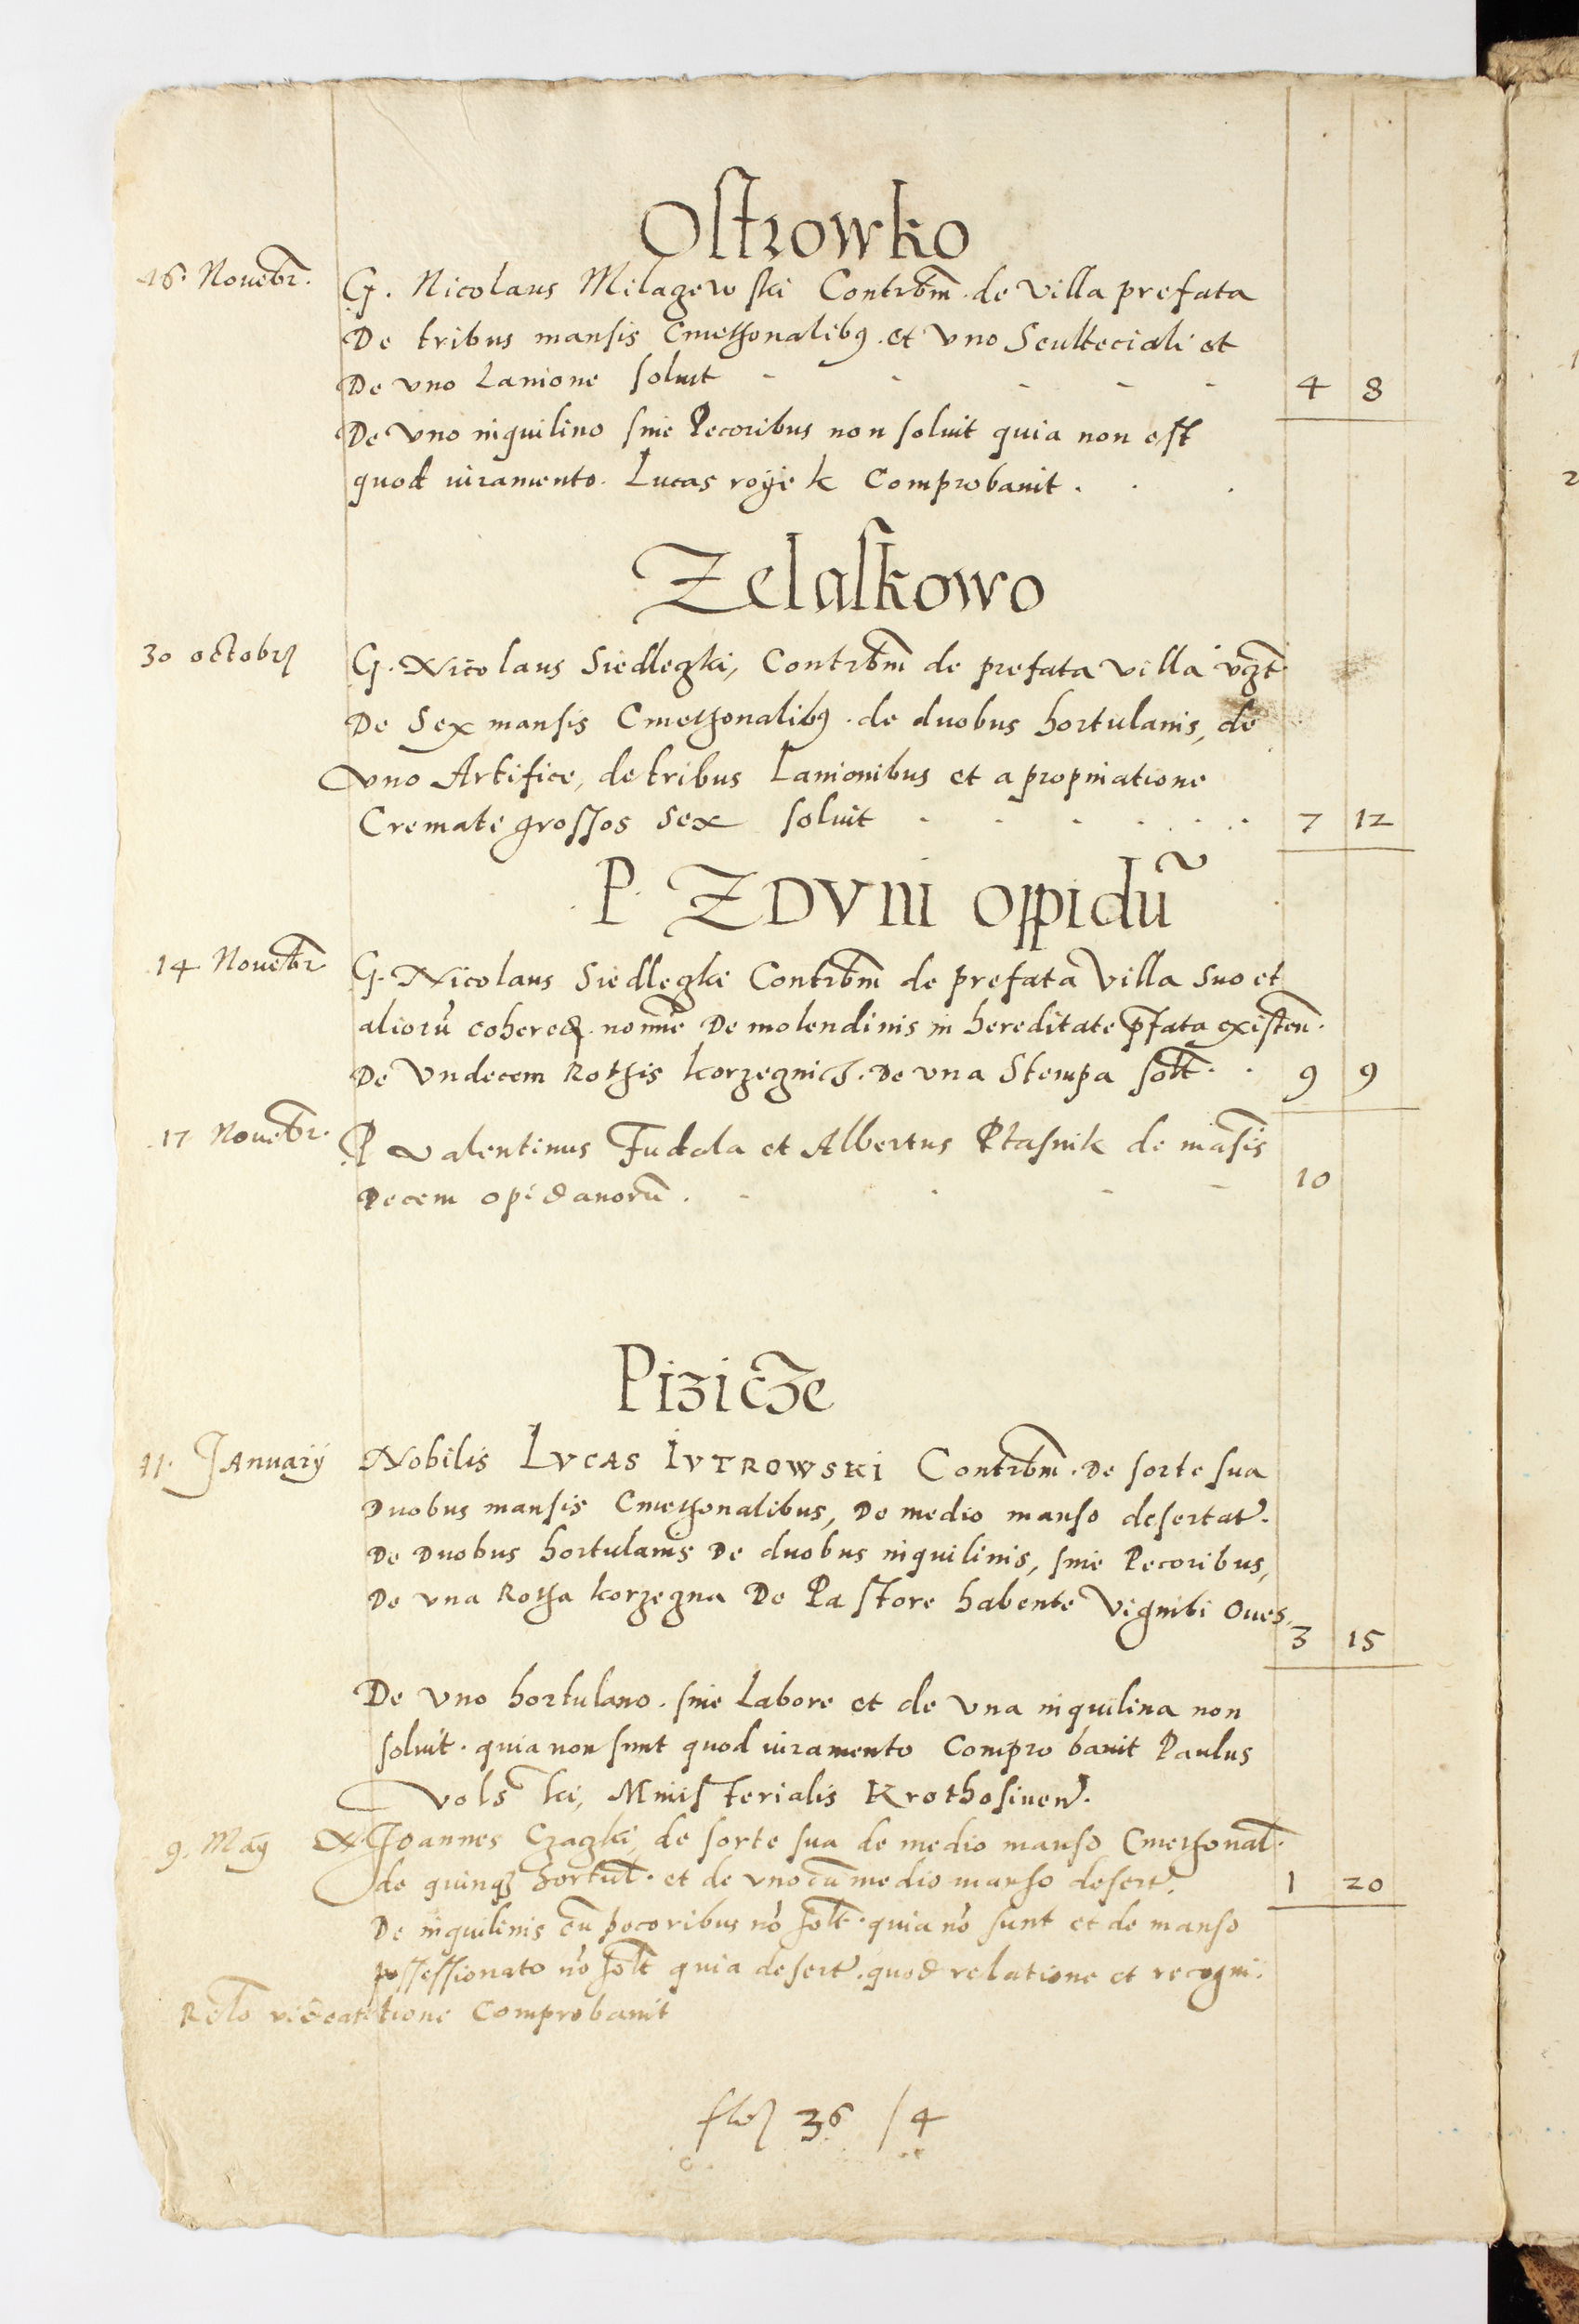 Ostrowko
16 Nouebr. G. Nicolaus Milagewski Contrbm. de villa prefata
De tribus mansis Cmethonalibus. et vno Sculteciali et
De vno Lanione soluit 4 8
De vno inquilino sine Pecoribus non soluit quia non est
quod iuramento. Lucas royek Comprobauit.
Zelaskowo
30 octobris G. Nicolaus Siedlegki, Contrbm de prefata villa vgt
De Sex mansis Cmethonalibus. de duobus hortulanis, de
vno Artifice, de tribus Lanionibus et a propinatione
Cremate grossos Sex soluit 7 12
P. ZDVNI oppidũ
14 Nouebr G. Nicolaus Siedlegki Contrbm de prefata Villa Suo et
aliorũ cohered. nomine De molendinis in hereditate pfata existen.
De Vndecem Rothis korzegnich. De vna Stempa solt. 9 9
17 Nouebr. P valentinus Fudala et Albertus Ptasnik de mãsis
Decem opidanorũ. 10
Pizicze
11. January Nobilis LVCAS IVTROWSKI Contrbm. De sorte sua
Duobus mansis Cmethonalibus, De medio manso desertat.
De Duobus hortulanis De duobus inquilinis, sine Pecoribus,
De vna Rotha korzegna De Pastore habente Viginti Oues. 3 15
De vno hortulano. sine Labore et de vna inquilina non
soluit. quia non sunt quod iuramento Comprobauit Paulus
volski, Ministerialis Krothosinen.
9. May N Joannes Czagki, de sorte sua de medio manso Cmethonal.
de quinque hortul. et de vno cũ medio manso desert. 1 20
De inquilinis cũ pecoribus nõ solt. quia nõ sunt et de manso
possessionato nõ solt quia desert. quod relatione et recogni.
Relo videat tione Comprobauit
36 / 4